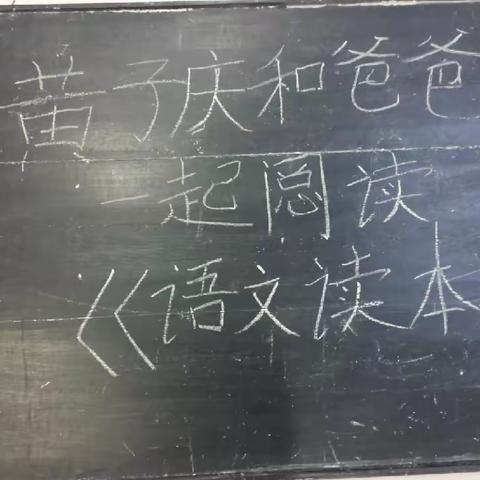 黄子庆和爸爸
一起阅读
《语文读本